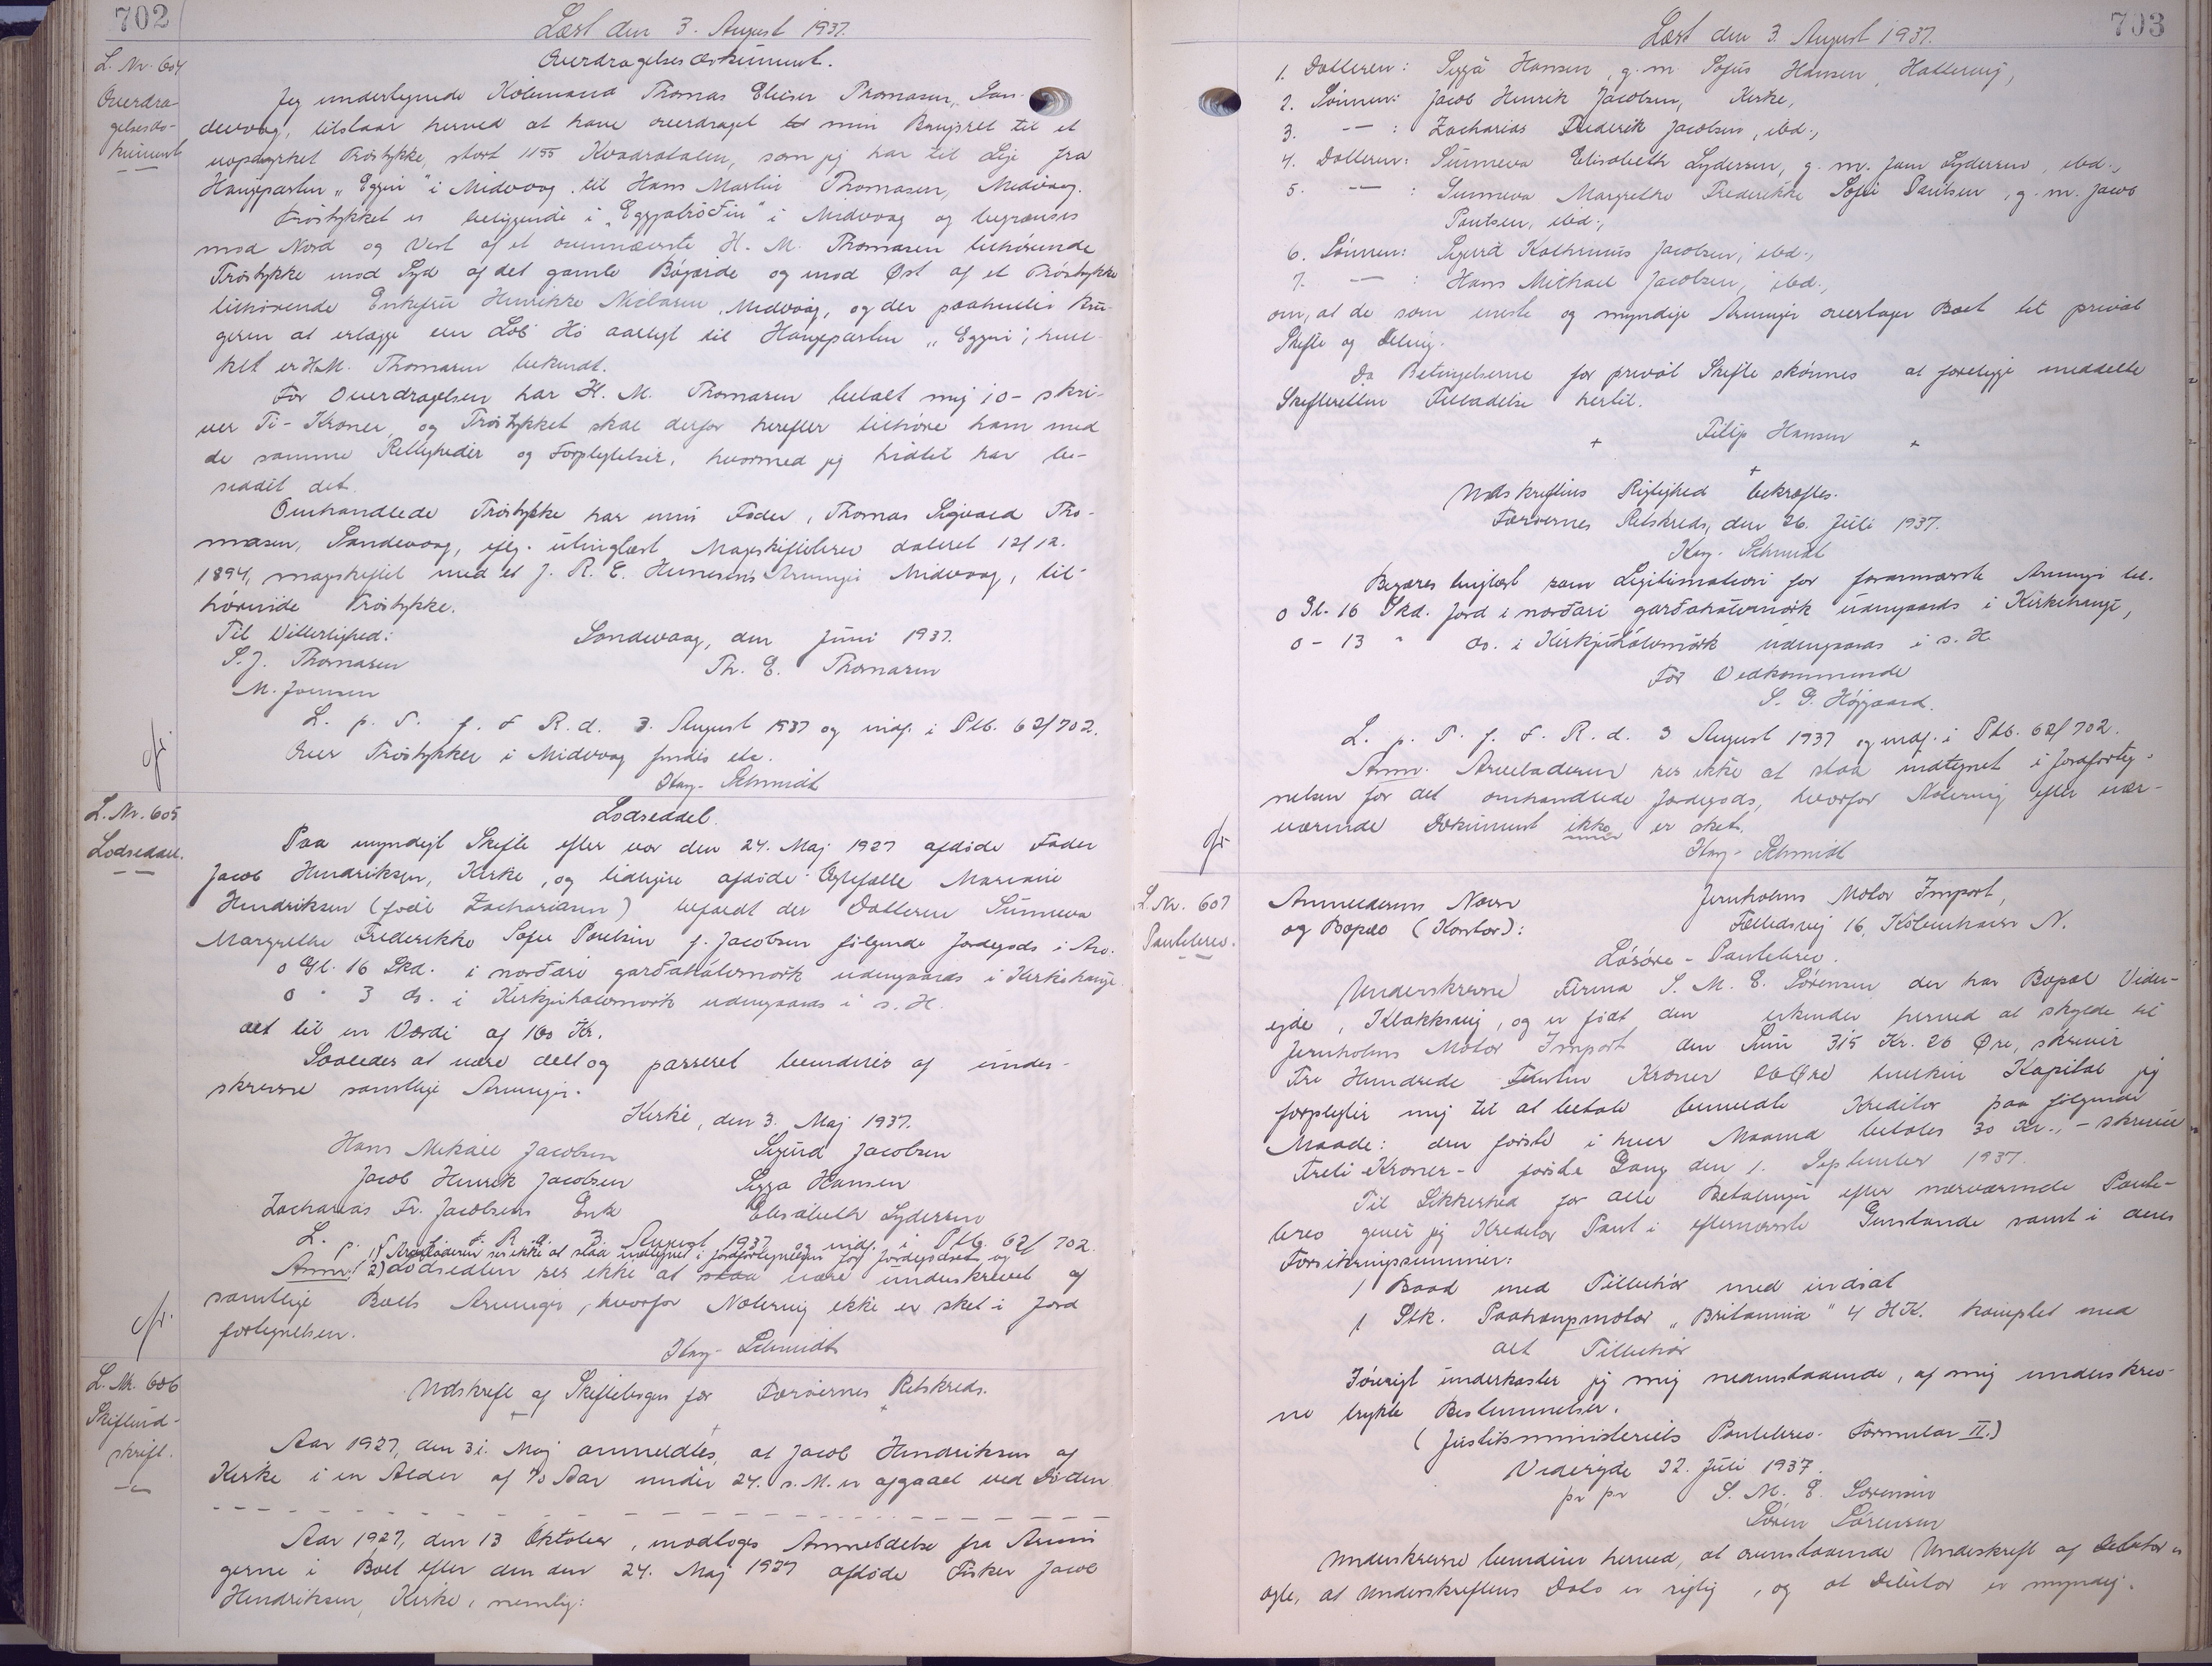 702
Læst den 3. August 1937.
L. Nr. 604
Overdra-
gelsesdo-
kument
Overdragelsesdokument.
Jeg undertegnede Købmand Thomas Elieser Thomasen, San-
devaag, tilstaar herved at have overdraget min Brugsret til et
uopdyrket Trøstykke, stort 1155 Kvadratalen, som jeg har til Leje fra
Haugeparten "Eggin" i Midvaag til Hans Martin Thomasen, Midvaag.
Trøstykket er beliggende i "Eggjatrøðin" i Midvaag og begrænses
mod Nord og Vest af et ovennævnte H. M. Thomasen tilhørende
Trøstykke mod Syd af det gamle Bøgærde og mod Øst af et Trøstykke
tilhørende Enkefru Henrikke Niclasen, Midvaag, og der paahviler Bru-
geren at erlægge een Løb Hø aarligt til Haugeparten "Eggin", hvil-
ket er H.M. Thomasen bekendt.
For Overdragelsen har H. M. Thomasen betalt mig 10 - skri-
ver Ti - Kroner, og Trøstykket skal derfor herefter tilhøre ham med
de samme Rettigheder og Forpligtelser, hvormed jeg hidtil har be-
siddet det.
Omhandlede Trøstykke har min Fader, Thomas Sigvald Tho-
masen, Sandevaag, iflg. utinglæst Mageskiftebrev dateret 12/12.
1894, mageskiftet med et J. R. E. Hennesens Arvinger Midvaag, til-
hørende Trøstykke.
Til Vitterlighed:
Sandevaag, den Juni 1937.
S. J. Thomasen
Th. E. Thomasen
M. Joensen
L. p. T. f. F. R. d. 3. August 1937 og indf. i Ptb. 62/702.
Over Trøstykker i Midvaag findes etc.
Kay- Schmidt
L. Nr. 605
Lodseddel.
Lodseddel.
Paa myndigt Skifte efter vor den 24. Maj 1927 afdøde Fader
Jacob Hendriksen, Kirke, og tidligere afdøde Ægtefælle Marianne
Hendriksen (født Zachariasen) tilfaldt der Datteren Sunneva
Margrethe Frederikke Sofie Poulsen f. Jacobsen følgende Jordegods i Arv.
0 Gl. 16 Skd. i norðari garðahálvmørk udengaards i Kirkehauge
0 " 3 ds. i Kirkjuhálvmørk udengaards i s. H.
alt til en Værdi af 100 Kr.
Saaledes at være delt og passeret bevidnes af under-
skrevne samtlige Arvinger.
Kirke, den 3. Maj 1937.
Hans Mikael Jacobsen
Sigurd Jacobsen
Jacob Henrik Jacobsen
Sigga Hansen
Zacharias Fr. Jacobsens Enk
Elisabeth Lydersen
L. p. T. f. F. R. d. 3. August 1937 og indf. i Ptb. 62/702.
1) Arveladeren ses ikke at staa indtegnet i Jordfortegnelsen for Jordegodset og
Anm. 2) Lodsedlen ses ikke at staa være underskrevet af
samtlige Boets Arvinger, hvorfor Notering ikke er sket i Jord
fortegnelsen.
Kay- Schmidt
L. Nr. 606
Skifteud-
skrift.
Udskrift af Skiftebogen for Færøernes Retskreds.
Aar 1927, den 31. Maj anmeldtes, at Jacob Hendriksen af
Kirke i en Alder af 70 Aar under 24. s. M. er afgaaet ved Døden
Aar 1927, den 13 Oktober, modtoges Anmeldelse fra Arvin
gerne i Boet efter den den 24. Maj 1927 afdøde Fisker Jacob
Hendriksen, Kirke, nemlig:
703
Læst den 3. August 1937.
1. Datteren: Sigga Hansen, g. m. Sofus Hansen, Hattervig,
2. Sønnen: Jacob Henrik Jacobsen, Kirke,
3. — : Zacharias Frederik Jacobsen, ibd.,
4. Datteren: Sunneva Elisabeth Lydersen, g. m. Jens Lydersen, ibd.,
5. — : Sunneva Margrethe Frederikke Sofie Poulsen, g. m. Jacob
Poulsen, ibd.,
6. Sønnen: Sigurd Kathrinus Jacobsen, ibd.,
7. — : Hans Michael Jacobsen, ibd.,
om, at de som eneste og myndige Arvinger overtager Boet til privat
Skifte og Deling.
Da Betingelserne for privat Skifte skønnes at foreligge meddelte
Skifteretten Tilladelse hertil.
Filip Hansen
Udskriftens Rigtighed bekræftes.
Færøernes Retskreds, den 26. Juli 1937.
Kay- Schmidt
Begæres tinglæst som Legitimation for forannævnte Arvinger til.
0 Gl. 16 Skd. Jord i norðari garðahálvmørk udengaards i Kirkehauge,
0 - 13 " ds. i Kirkjuhálvmørk udengaards i s. H
For Vedkommende
S. P. Højgaard.
L. p. T. f. F. R. d. 3 August 1937 og indf. i Ptb. 62/702.
Anm. Arveladeren ses ikke at staa indtegnet i Jordforteg-
nelsen for det omhandlede Jordegods, hvorfor Notering efter nær-
værende Dokument ikke er sket.
Kay- Schmidt
L. Nr. 607
Pantebrev.
Anmelderens Navn
og Bopæl (Kontor):
Jernholms Motor Import,
Fælledvej 16, København N.
Løsøre - Pantebrev.
Underskrevne Firma S. M. E. Sørensen der har Bopæl Vider-
ejde, Klakksvig, og er født den erkender herved at skylde til
Jernholms Motor Import den Sum 315 Kr. 26 Øre, skriver
Tre Hundrede Femten Kroner 26 Øre hvilken Kapital jeg
forpligter mig til at betale bemeldte Kreditor paa følgende
Maade: den første i hver Maaned betales 30 Kr., - skriver
Treti Kroner - første Gang den 1. September 1937.
Til Sikkerhed for alle Betalinger efter nærværende Pante-
brev giver jeg Kreditor Pant i efternævnte Genstande samt i deres
Forsikringssummer:
1 Baad med Tilbehør med indsat
1 Stk. Paahængsmotor "Britannia" 4 HK. komplet med
alt Tilbehør
Iøvrigt underkaster jeg mig nedenstaaende, af mig underskrev-
ne trykte Bestemmelser.
(Justitsministeriets Pantebrev- Formular II.)
Viderejde 22. Juli 1937.
pr pr S. M. E. Sørensen
Søren Sørensen
Underskrevne bevidner herved, at ovenstaaende Underskrift af Debitor er
ægte, at Underskriftens Dato er rigtig, og at Debitor er myndig.